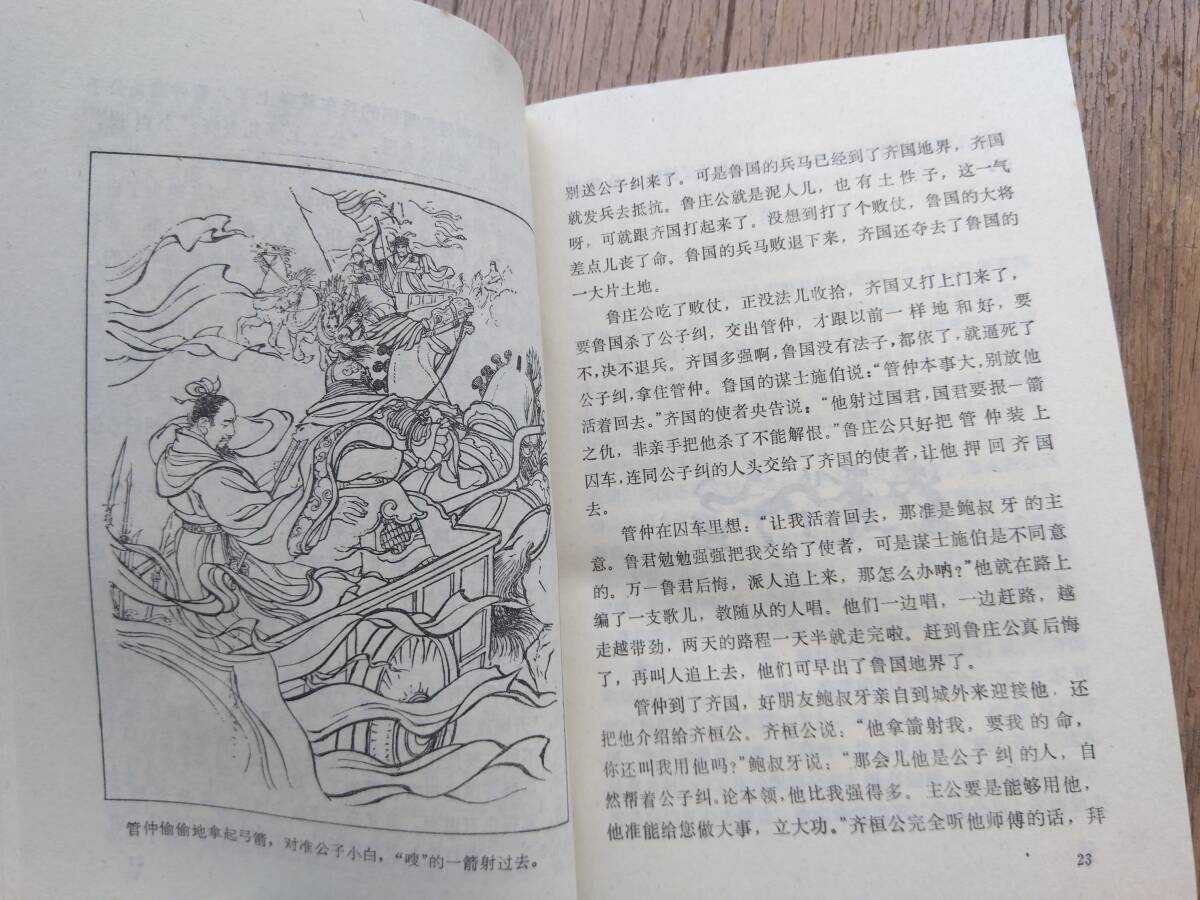 管仲偷偷地拿起弓箭，对准公子小白，“嗖”的一箭射过去。
别送公子纠来了。可是鲁国的兵马已经到了齐国地界，齐国
就发兵去抵抗。鲁庄公就是泥人儿，也有土性子，这一气
呀，可就跟齐国打起来了。没想到打了个败仗，鲁国的大将
差点儿丧了命。鲁国的兵马败退下来，齐国还夺去了鲁国的
一大片土地。
鲁庄公吃了败仗，正没法儿收拾，齐国又打上门来了，
要鲁国杀了公子纠，交出管仲，才跟以前一样地和好，要
不，决不退兵。齐国多强啊，鲁国没有法子，都依了，就逼死了
公子纠，拿住管仲。鲁国的谋士施伯说：“管仲本事大，别放他
活着回去。”齐国的使者央告说：“他射过国君，国君要报一箭
之仇，非亲手把他杀了不能解恨。”鲁庄公只好把管仲装上
囚车，连同公子纠的人头交给了齐国的使者，让他押回齐国
去。
管仲在囚车里想：“让我活着回去，那准是鲍叔牙的主
意。鲁君勉勉强强把我交给了使者，可是谋士施伯是不同意
的。万一鲁君后悔，派人追上来，那怎么办呐？”他就在路上
编了一支歌儿，教随从的人唱。他们一边唱，一边赶路，越
走越带劲，两天的路程一天半就走完啦。赶到鲁庄公真后悔
了，再叫人追上去，他们可早出了鲁国地界了。
管仲到了齐国，好朋友鲍叔牙亲自到城外来迎接他，还
把他介绍给齐桓公。齐桓公说：“他拿箭射我，要我的命，
你还叫我用他吗？”鲍叔牙说：“那会儿他是公子纠的人，自
然帮着公子纠，论本领，他比我强得多。主公要是能够用他，
他准能给您做大事，立大功。”齐桓公完全听他师傅的话，拜
23